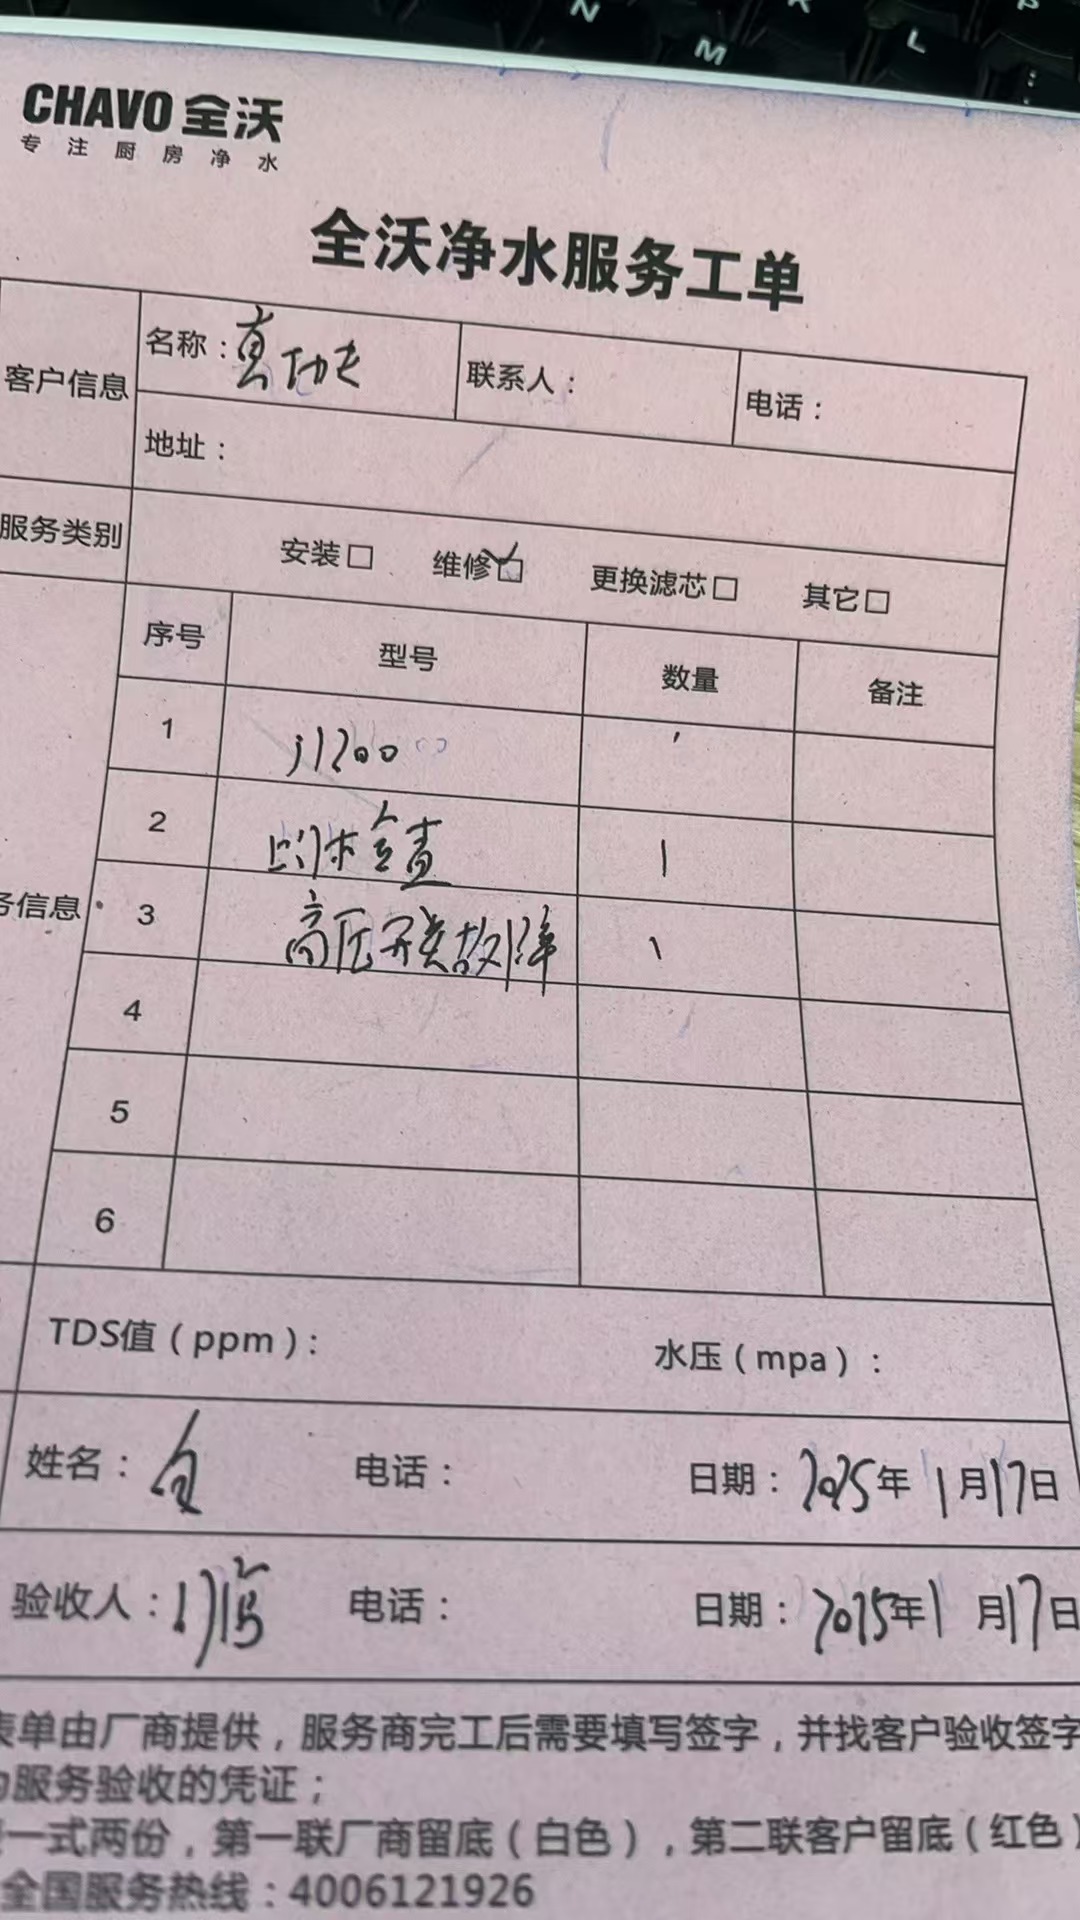 CHAVO 全沃
专注厨房净水
全沃净水服务工单
客户信息
名称：真功夫
联系人：
电话：
地址：
服务类别
安装□ 维修☑ 更换滤芯□ 其它□
序号 型号 数量 备注
务信息
1 J1200 1
2 上门检查 1
3 高压开关故障 1
4
5
6
TDS值（ppm）： 水压（mpa）：
姓名： 电话： 日期：2025年1月17日
验收人： 电话： 日期：2025年1月17日
表单由厂商提供，服务商完工后需要填写签字，并找客户验收签字
为服务验收的凭证；
一式两份，第一联厂商留底（白色），第二联客户留底（红色）
全国服务热线：4006121926